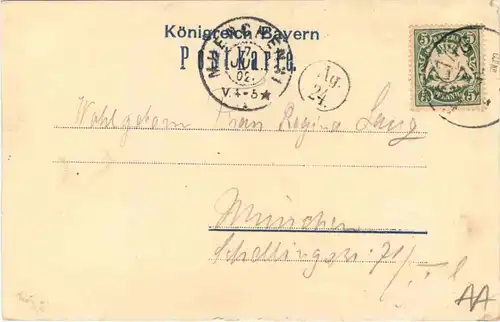 Königreich Bayern
Postkarte.
MUENCHEN I
7
JUL
02.
V. 4-5
Ag.
24.
5 5
5 5
PFENNIG
Wohlgeborn Frau Regina Lang
München
Schellingstr. 71/I. l
AA